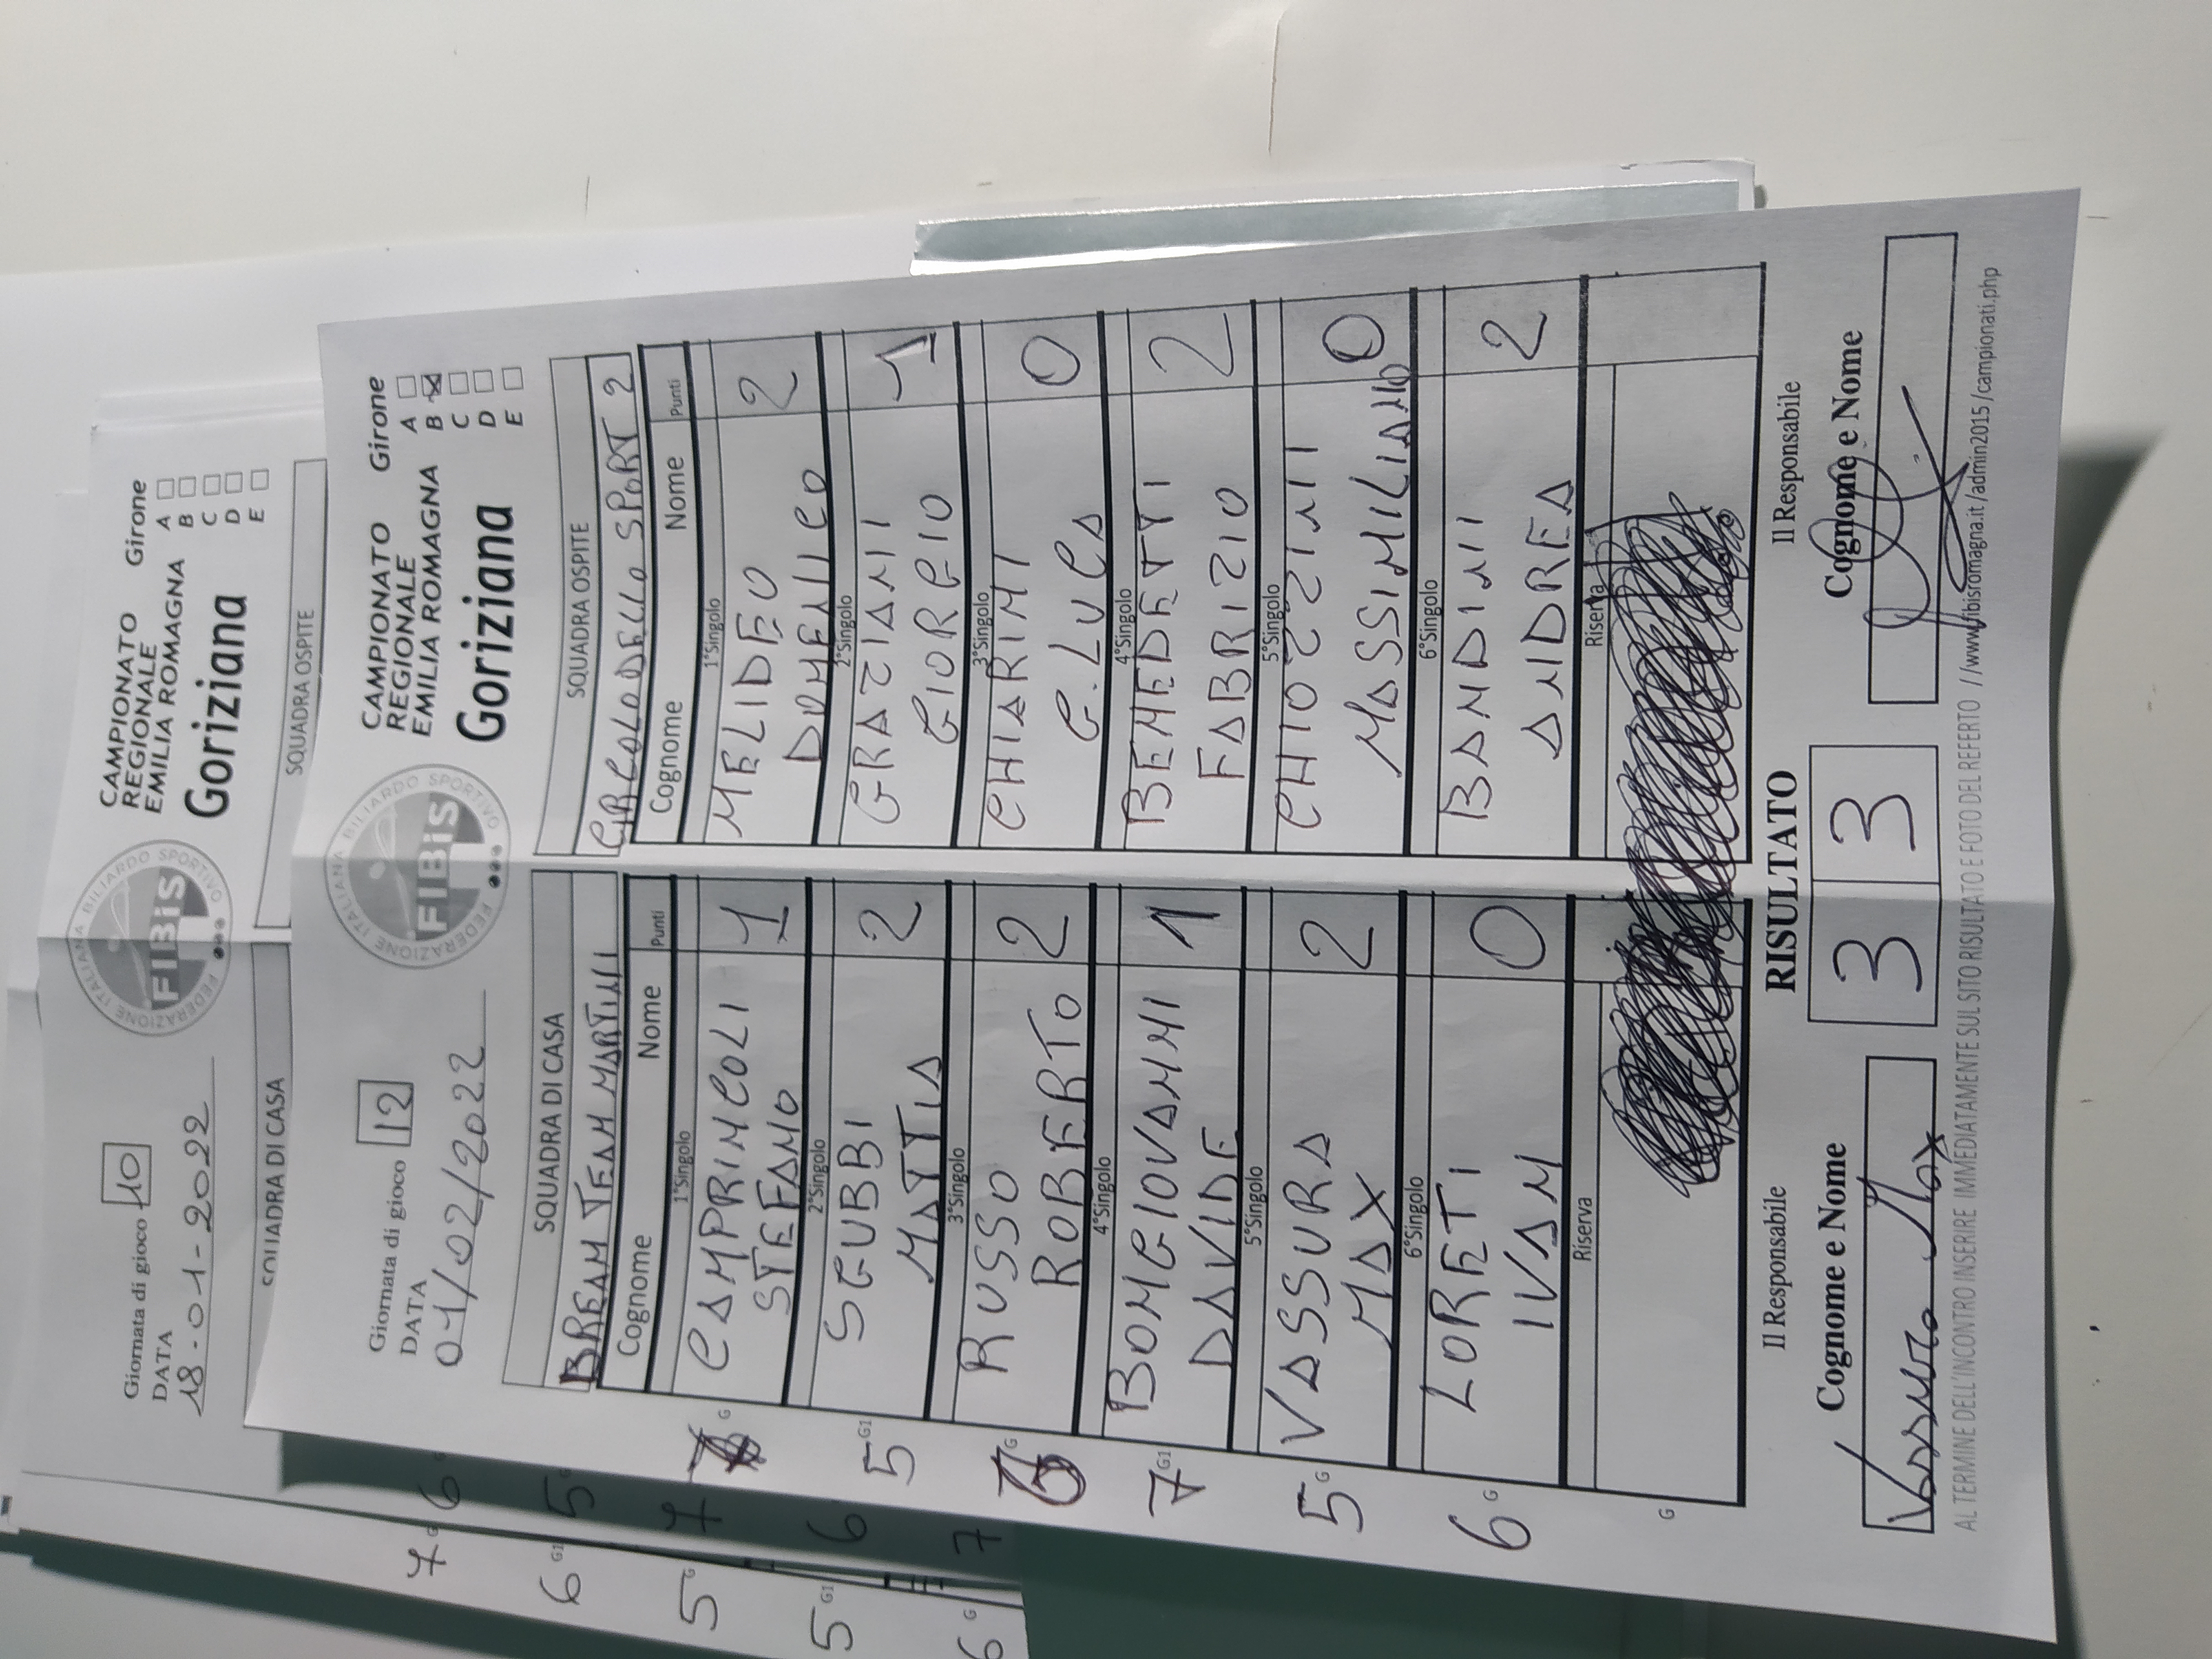 Giornata di gioco 10
DATA
18-01-2022
FEDERAZIONE ITALIANA BILIARDO SPORTIVO
FIBiS
CAMPIONATO
REGIONALE
EMILIA ROMAGNA
Goriziana
Girone
A
B
C
D
E
SQUADRA DI CASA
SQUADRA OSPITE
Giornata di gioco 12
DATA
01/02/2022
FEDERAZIONE ITALIANA BILIARDO SPORTIVO
FIBiS
CAMPIONATO
REGIONALE
EMILIA ROMAGNA
Goriziana
Girone
A
B
C
D
E
SQUADRA DI CASA
DREAM TEAM MARTINI
Cognome Nome Punti
1°Singolo
CAMPRINCOLI
STEFANO 1
2°Singolo
SGUBBI
MATTIA 2
3°Singolo
RUSSO
ROBERTO 2
4°Singolo
BONGIOVANNI
DAVIDE 1
5°Singolo
VASSURA
MAX 2
6°Singolo
LORETI
IVAN 0
Riserva
SQUADRA OSPITE
CIRCOLO DELLO SPORT 2
Cognome Nome Punti
1°Singolo
MELIDEO
DOMENICO 2
2°Singolo
GRAZIANI
GIORGIO 1
3°Singolo
CHIARINI
G.LUCA 0
4°Singolo
BENEDETTI
FABRIZIO 2
5°Singolo
CHIOZZINI
MASSIMILIANO 0
6°Singolo
BANDINI
ANDREA 2
Riserva
G
G1
5
G
G1
7
G
5
G
6
G
Il Responsabile
Cognome e Nome
Vassura Max
RISULTATO
3 3
Il Responsabile
Cognome e Nome
AL TERMINE DELL'INCONTRO INSERIRE IMMEDIATAMENTE SUL SITO RISULTATO E FOTO DEL REFERTO //www.fibisromagna.it/admin2015/campionati.php
6
5
7
6
7
7
6 G1
5 G
5 G1
6 G